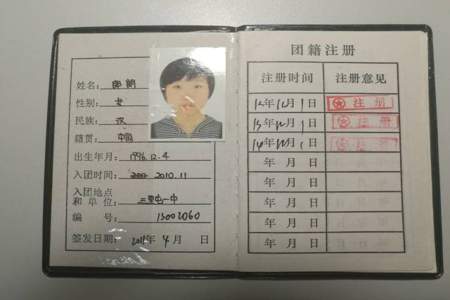 姓名：
性别：女
民族：汉
籍贯：中国
出生年月：1996.12.4
入团时间：2010.11
入团地点
和单位：一中
编号：15002060
签发日期：年4月 日
团籍注册
注册时间 注册意见
12年12月1日 注册
13年12月1日 注册
14年12月1日 注册
年 月 日
年 月 日
年 月 日
年 月 日
年 月 日